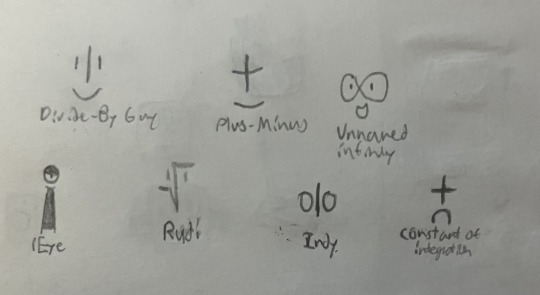 Divide-By Guy
Plus-Minus
Unnamed
infinity
iEye
0|0
Indy.
Constant of
integration